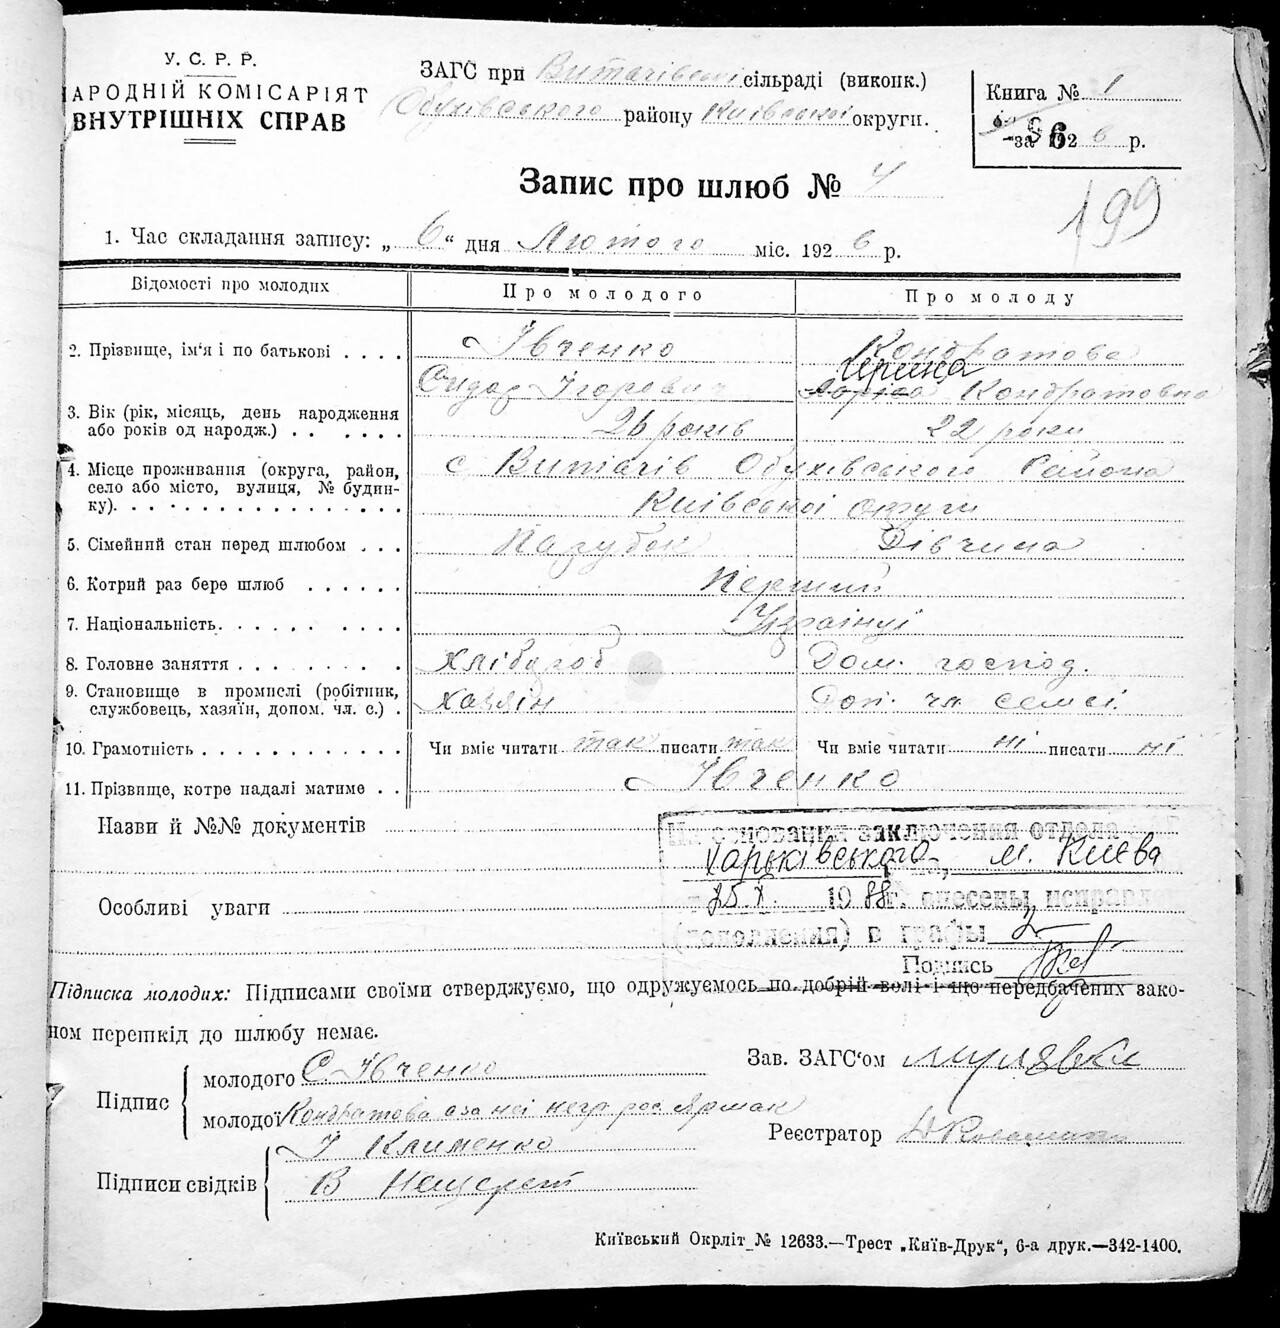 У. С. Р. Р.
НАРОДНІЙ КОМІСАРІЯТ
ВНУТРІШНІХ СПРАВ
ЗАГС при Витачівські сільраді (виконк.)
Обухівського району Київської округи.
Книга № 1
за 192 6 р.
Запис про шлюб № 4
199
1. Час складання запису: „ 6 “ дня Лютого міс. 192 6 р.
Відомості про молодих
Про молодого
Про молоду
2. Прізвище, ім‘я і по батькові . . . .
Івченко
Кондратова
Сидор Ігорович
Кондратовна
3. Вік (рік, місяць, день народження
або років од народж.) . . . . . .
26 років
22 роки
4. Місце проживання (округа, район,
село або місто, вулиця, № будин-
ку). . . . . . . . . . . . . . . .
с Витачів Обухівського Района
Київської округи
5. Сімейний стан перед шлюбом . . .
Парубок
Дівчина
6. Котрий раз бере шлюб . . . . . .
Перший
7. Національність. . . . . . . . . .
Українці
8. Головне заняття . . . . . . . . .
Хлібороб
Дом. господ.
9. Становище в промислі (робітник,
службовець, хазяїн, допом. чл. с.) .
Хазяїн
Доп. чл семєї
10. Грамотність . . . . . . . . . . .
Чи вміє читати так писати так
Чи вміє читати ні писати ні
11. Прізвище, котре надалі матиме . .
Івченко
Назви й №№ документів
На основании заключения отдела
Харьківського м. Києва
25.X. 1988 г. внесены исправлен
(дополнения) в графы 2
Подпись
Особливі уваги
Підписка молодих: Підписами своїми стверджуємо, що одружуємось по добрій волі і що передбачених зако-
ном перешкід до шлюбу немає.
Підпис
молодого С. Івченко
молодої Кондратова а за неї негр рос Ярмак
Зав. ЗАГС‘ом Мулявка
Реєстратор
Підписи свідків
І Клименко
В Нещерет
Київський Окрліт № 12633.—Трест „Київ-Друк“, 6-а друк.—342-1400.